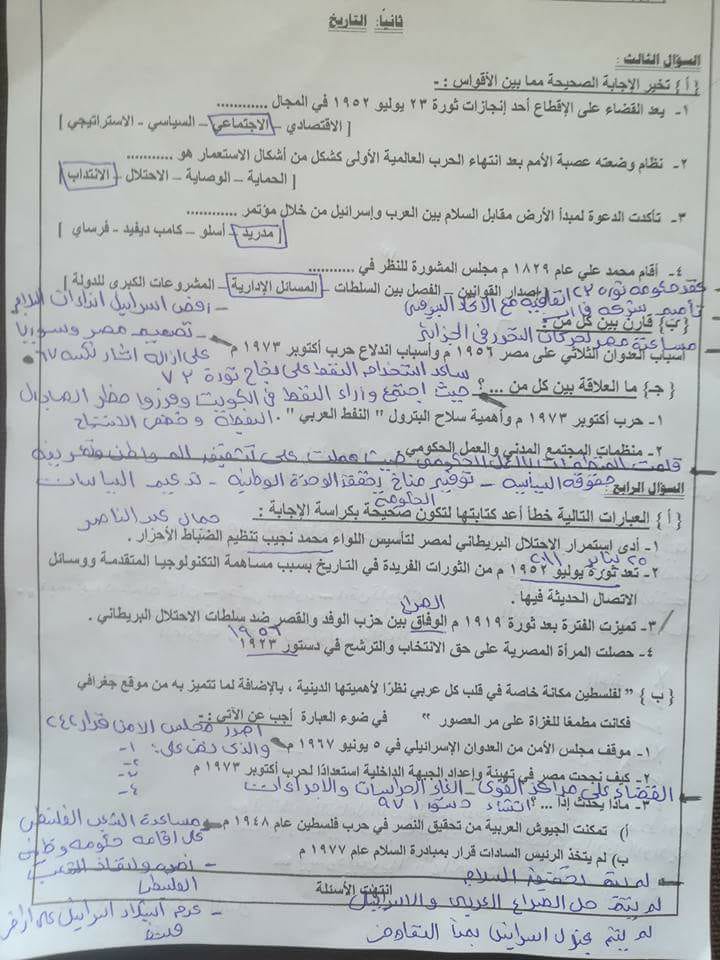 ثانيًا: التاريخ
السؤال الثالث :
{ أ } تخير الإجابة الصحيحة مما بين الأقواس : -
١- يعد القضاء على الإقطاع أحد إنجازات ثورة ٢٣ يوليو ١٩٥٢ في المجال ............
[ الاقتصادي – الاجتماعي – السياسي - الاستراتيجي ]
٢- نظام وضعته عصبة الأمم بعد انتهاء الحرب العالمية الأولى كشكل من أشكال الاستعمار هو ..........
[ الحماية – الوصاية – الاحتلال – الانتداب ]
٣- تأكدت الدعوة لمبدأ الأرض مقابل السلام بين العرب وإسرائيل من خلال مؤتمر ............
[ مدريد - أسلو - كامب ديفيد - فرساي ]
٤- أقام محمد علي عام ١٨٢٩ م مجلس المشورة للنظر في ..........
[ إصدار القوانين - الفصل بين السلطات – المسائل الإدارية - المشروعات الكبرى للدولة ]
عقد حكومة ثورة ٢٣ اتفاقية مع الاتحاد
تأميم شركة
- رفض اسرائيل
{ ب } قارن بين كل من :
مساعدة مصر لحركات التحرر في الجزائر
- تصميم مصر وسوريا
أسباب العدوان الثلاثي على مصر ١٩٥٦ م وأسباب اندلاع حرب أكتوبر ١٩٧٣ م
على ازالة اثار نكسة ٦٧
ساعد استخدام النفط على نجاح ثورة ٧٣
{ جـ } ما العلاقة بين كل من ... ؟
حيث اجتمع وزراء النفط في الكويت وقرروا حظر الصادرات
١- حرب أكتوبر ١٩٧٣ م وأهمية سلاح البترول " النفط العربي " .
النفطية و خفض الانتاج
٢- منظمات المجتمع المدني والعمل الحكومي
قامت المنظمات بالعمل الحكومي حيث عملت على تثقيف المواطن وتعريفه
حقوقه السياسية - توفير مناخ يحقق الوحدة الوطنية - تدعيم السياسات
السؤال الرابع
الحكومة
{ أ } العبارات التالية خطأ أعد كتابتها لتكون صحيحة بكراسة الإجابة :
جمال عبد الناصر
١- أدى استمرار الاحتلال البريطاني لمصر لتأسيس اللواء محمد نجيب تنظيم الضباط الأحرار .
٢٥ يناير ٢٠١١
٢- تعد ثورة يوليو ١٩٥٢ م من الثورات الفريدة في التاريخ بسبب مساهمة التكنولوجيا المتقدمة ووسائل
الاتصال الحديثة فيها .
الصراع
٣- تميزت الفترة بعد ثورة ١٩١٩ م الوفاق بين حزب الوفد والقصر ضد سلطات الاحتلال البريطاني .
١٩٥٦
٤- حصلت المرأة المصرية على حق الانتخاب والترشح في دستور ١٩٢٣
{ ب } " لفلسطين مكانة خاصة في قلب كل عربي نظرًا لأهميتها الدينية ، بالإضافة لما تتميز به من موقع جغرافي
فكانت مطمعًا للغزاة على مر العصور " في ضوء العبارة أجب عن الآتي : -
اصدر مجلس الامن قرار ٢٤٢
١- موقف مجلس الأمن من العدوان الإسرائيلي في ٥ يونيو ١٩٦٧ م
والذى نص على: ١-
٢-
٣-
٤-
٢- كيف نجحت مصر في تهيئة وإعداد الجبهة الداخلية استعدادًا لحرب أكتوبر ١٩٧٣ م
القضاء على مراكز القوى - الغاء الحراسات والاجراءات
٣- ماذا يحدث إذا ... ؟
انشاء دستور ١٩٧١
أ) تمكنت الجيوش العربية من تحقيق النصر في حرب فلسطين عام ١٩٤٨ م
مساعدة الشعب الفلسطيني
على اقامة حكومة وطنية
ب) لم يتخذ الرئيس السادات قرار بمبادرة السلام عام ١٩٧٧ م
- نصره وانقاذ الشعب
الفلسطيني
لم يتم تحقيق السلام
انتهت الأسئلة
لم يتم حل الصراع العربي والاسرائيلى
- عدم استيلاء اسرائيل على اراضى
فلسطين
لم يتم قبول اسرائيل بمبدأ التفاوض